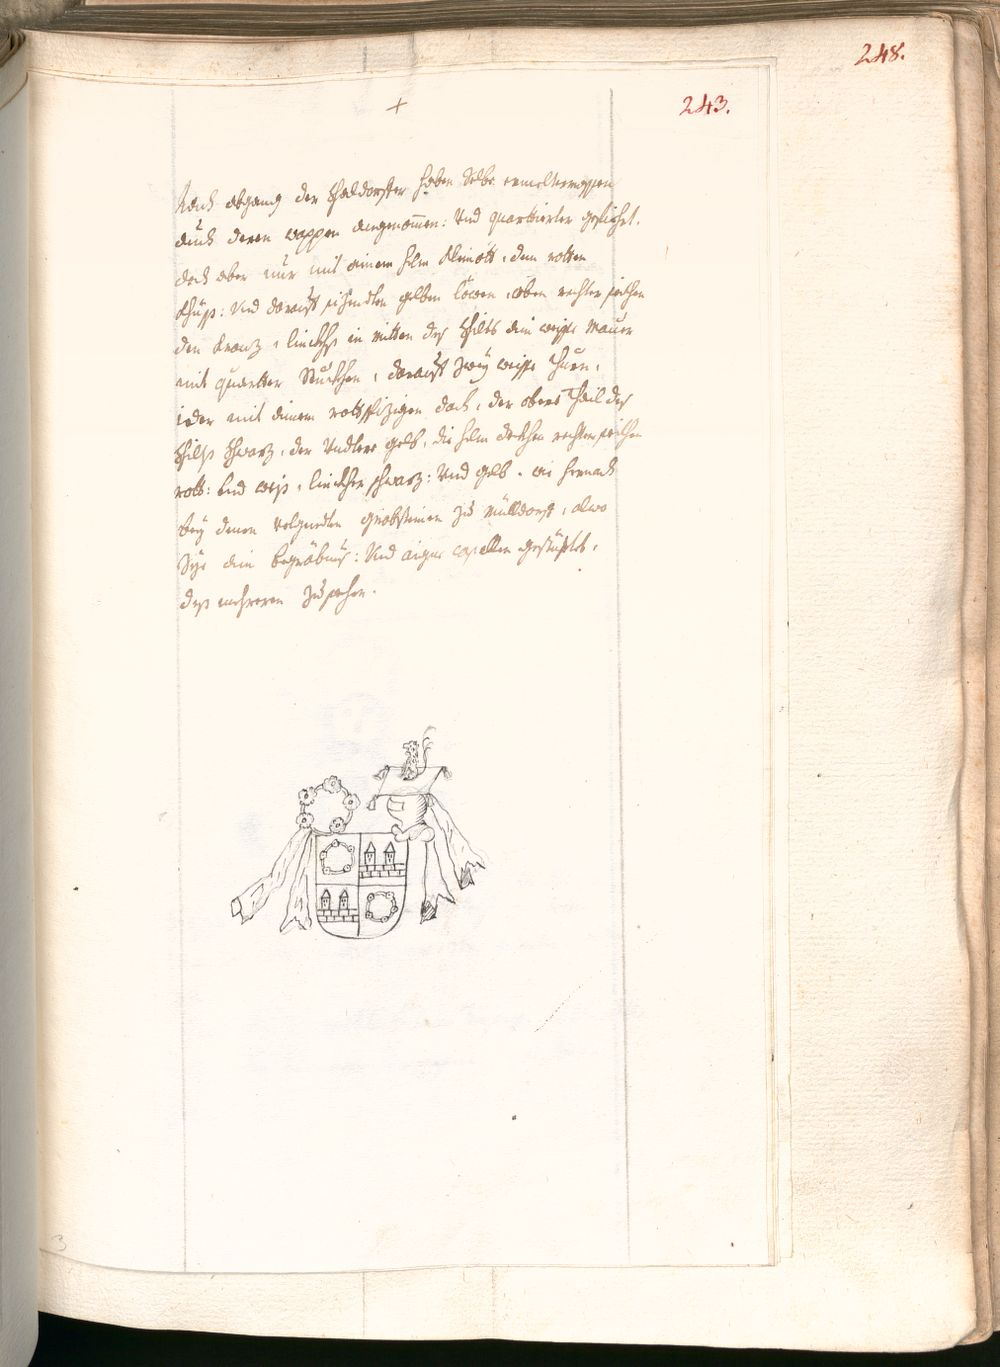 248.
243.
Nach abgang der Schaldorffer haben Selbe ermeltermassen
auch deren wappen angenommen: Und quartierter gefiehrt.
doch aber nur mit einem helm Kleinott, dem rotten
Khüss: Und darauf sizendten gelben löwen, oben rechter seithen
den Kranz, linckhs in mitten des Schilts ein weisse Mauer
mit quatter Stuckhen, darauf zwey weisse Thurn,
ieder mit einem rottspizigen dach, der obere Theil des
Schilts schwarz, der Undtere gelb, die helm dekhen rechter seithen
rott: Und weiß, linckher schwarz: Und gelb. wie hernach
bey denen volgendten grabsteinen zu Mülldorf, alwo
Sye ein begräbnus: Und aigne capellen gestüfftet,
des mehreren zu sehen.
3